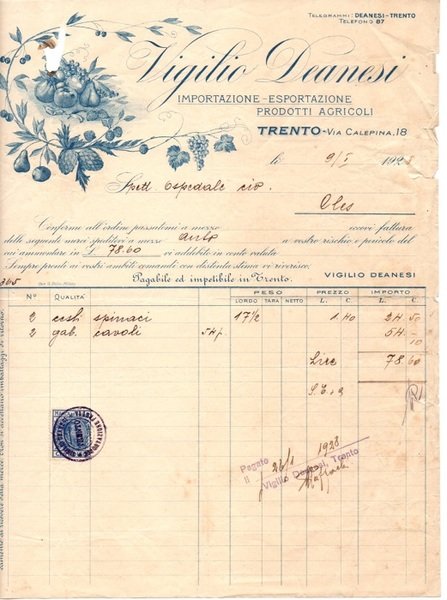 TELEGRAMMI: DEANESI-TRENTO
TELEFONO 87
Vigilio Deanesi
IMPORTAZIONE - ESPORTAZIONE
PRODOTTI AGRICOLI
TRENTO - VIA CALEPINA, 18
li 9/I 1928
Spett Ospedale civ.
Cles
Conforme all'ordine passatomi a mezzo eccovi fattura
delle seguenti merci speditevi a mezzo auto a vostro rischio e pericolo del
cui ammontare in L. 78.60 vi addebito in conto valuta
Sempre pronti ai vostri ambiti comandi con distinta stima vi riverisco.
VIGILIO DEANESI
365
Pagabile ed impetibile in Trento.
N° QUALITÀ PESO PREZZO IMPORTO
LORDO TARA NETTO L. C. L. C.
2 cesti spinaci 17½ 1.40 24.50
2 gab. cavoli 54.10
Lire 78.60
S.E.&O.
Pagato
li 26/1 1928
Vigilio Deanesi, Trento